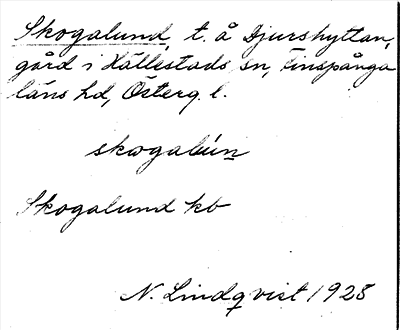 Skogalund, t. å Djurshyttan,
gård i Hällestads sn, Finspånga
läns hd, Österg. l.
skωgalún
Skogalund kb
N. Lindqvist 1928